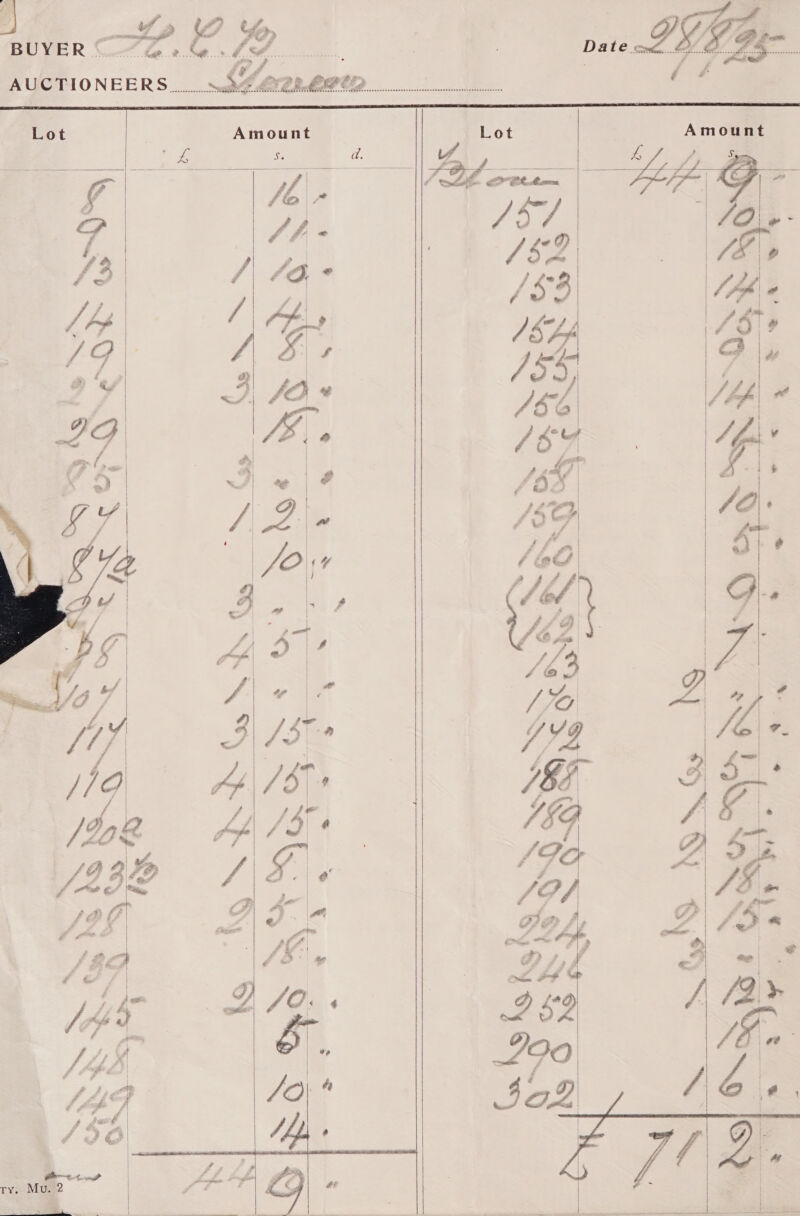 BUYER H. C. B
Date 28/8/25
AUCTIONEERS Stevens
Lot Amount
£ s. d.
8 16 "
9 11 "
13 1 10 "
14 1 4 "
19 1 8 "
27 3 10 "
29 18 "
85 3 " "
87 1 2 "
87a 10 "
97 3 " "
98 4 5 "
107 1 " "
117 3 15 "
119 4 15 "
120a 4 15 "
123B 1 8 "
128 2 5 "
139 18 "
145 2 10 "
148 5 "
149 10 "
150 14 "
44 9 "
TY. MU. 2
Lot Amount
£ s.
44 9 -
151 10 "
152 18 "
153 14 "
154 15 "
155 9 "
156 14 "
157 11 "
158 8 "
159 10 "
160 5 "
{161} 9 "
{162}
163 7 "
170 2 " "
172 16 "
188 3 5 "
189 1 8 "
190 2 5 "
191 18 "
224 2 15 "
246 3 " "
252 1 12 "
290 18 "
302 1 6 "
£ 71 2 "